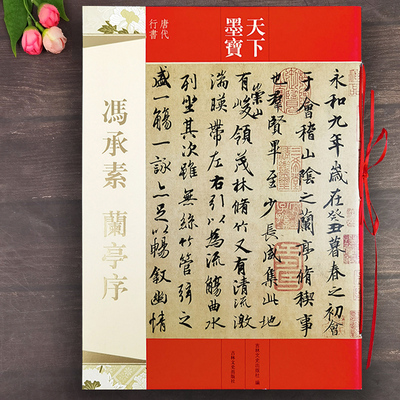 天下
墨寶
唐代
行書
馮承素 蘭亭序
永和九年歲在癸丑暮春之初會
于會稽山陰之蘭亭脩稧事
也羣賢畢至少長咸集此地
有崇山峻領茂林脩竹又有清流激
湍暎帶左右引以為流觴曲水
列坐其次雖無絲竹管弦之
盛一觴一詠亦足以暢敘幽情
吉林文史出版社 編
吉林文史出版社